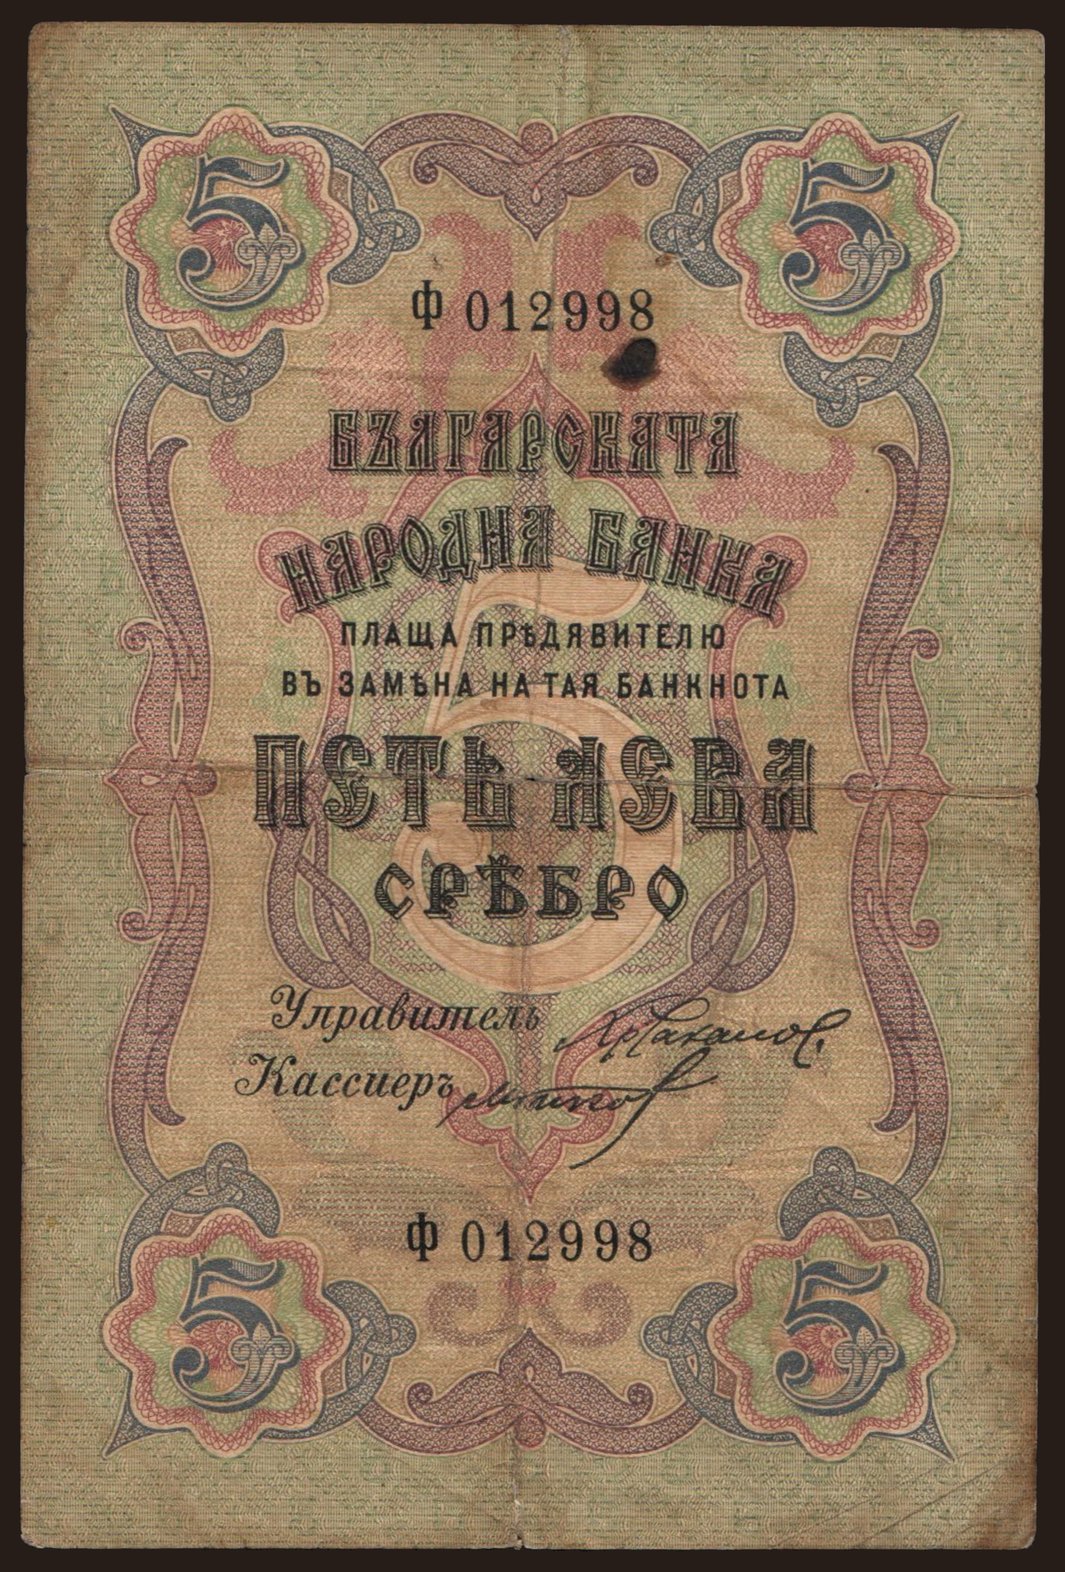 5 5
Ф 012998
БЪЛГАРСКАТА
НАРОДНА БАНКА
ПЛАЩА ПРѢДЯВИТЕЛЮ
ВЪ ЗАМѢНА НА ТАЯ БАНКНОТА
5
ПЕТЬ ЛЕВА
СРѢБРО
Управитель
Кассиеръ
Ф 012998
5 5